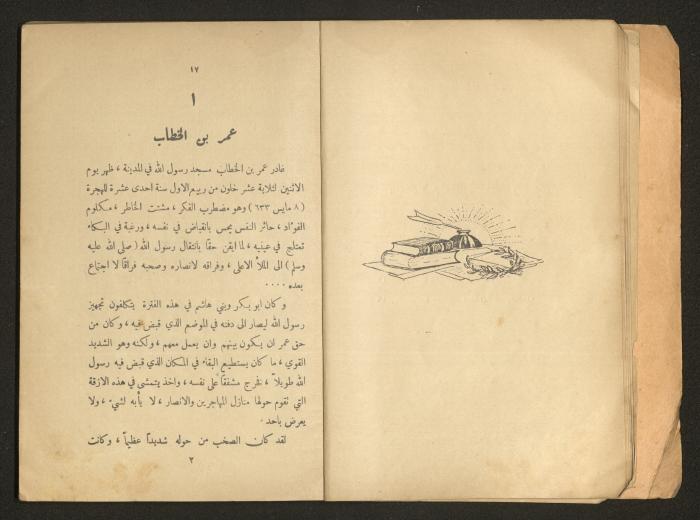 ١٧
١
عمر بن الخطاب
غادر عمر بن الخطاب مسجد رسول الله في المدينة ، ظهر يوم
الاثنين لثلاثة عشر خلون من ربيع الاول سنة احدى عشرة للهجرة
( ٨ مايس ٦٣٣ ) وهو مضطرب الفكر ، مشتت الخاطر ، مكلوم
الفؤاد ، حائر النفس يحس بانقباض في نفسه ، ورغبة في البكاء
تعتلج في عينيه ، لما ايقن حقا بانتقال رسول الله ( صلى الله عليه
وسلم ) الى الملأ الاعلى ، وفراقه لانصاره وصحبه فراقاً لا اجتماع
بعده ....
وكان ابو بكر وبني هاشم في هذه الفترة يتكلفون تجهيز
رسول الله ليصار الى دفنه في الموضع الذي قبض فيه ، وكان من
حق عمر ان يكون بينهم وان يعمل معهم ، ولكنه وهو الشديد
القوي ، ما كان يستطيع البقاء في المكان الذي قبض فيه رسول
الله طويلاً ، فخرج مشفقاً على نفسه ، واخذ يتمشى في هذه الازقة
التي تقوم حولها منازل المهاجرين والانصار ، لا يأبه لشيء ، ولا
يعرض باحد .
لقد كان الصخب من حوله شديداً عظيماً ، وكانت
٢